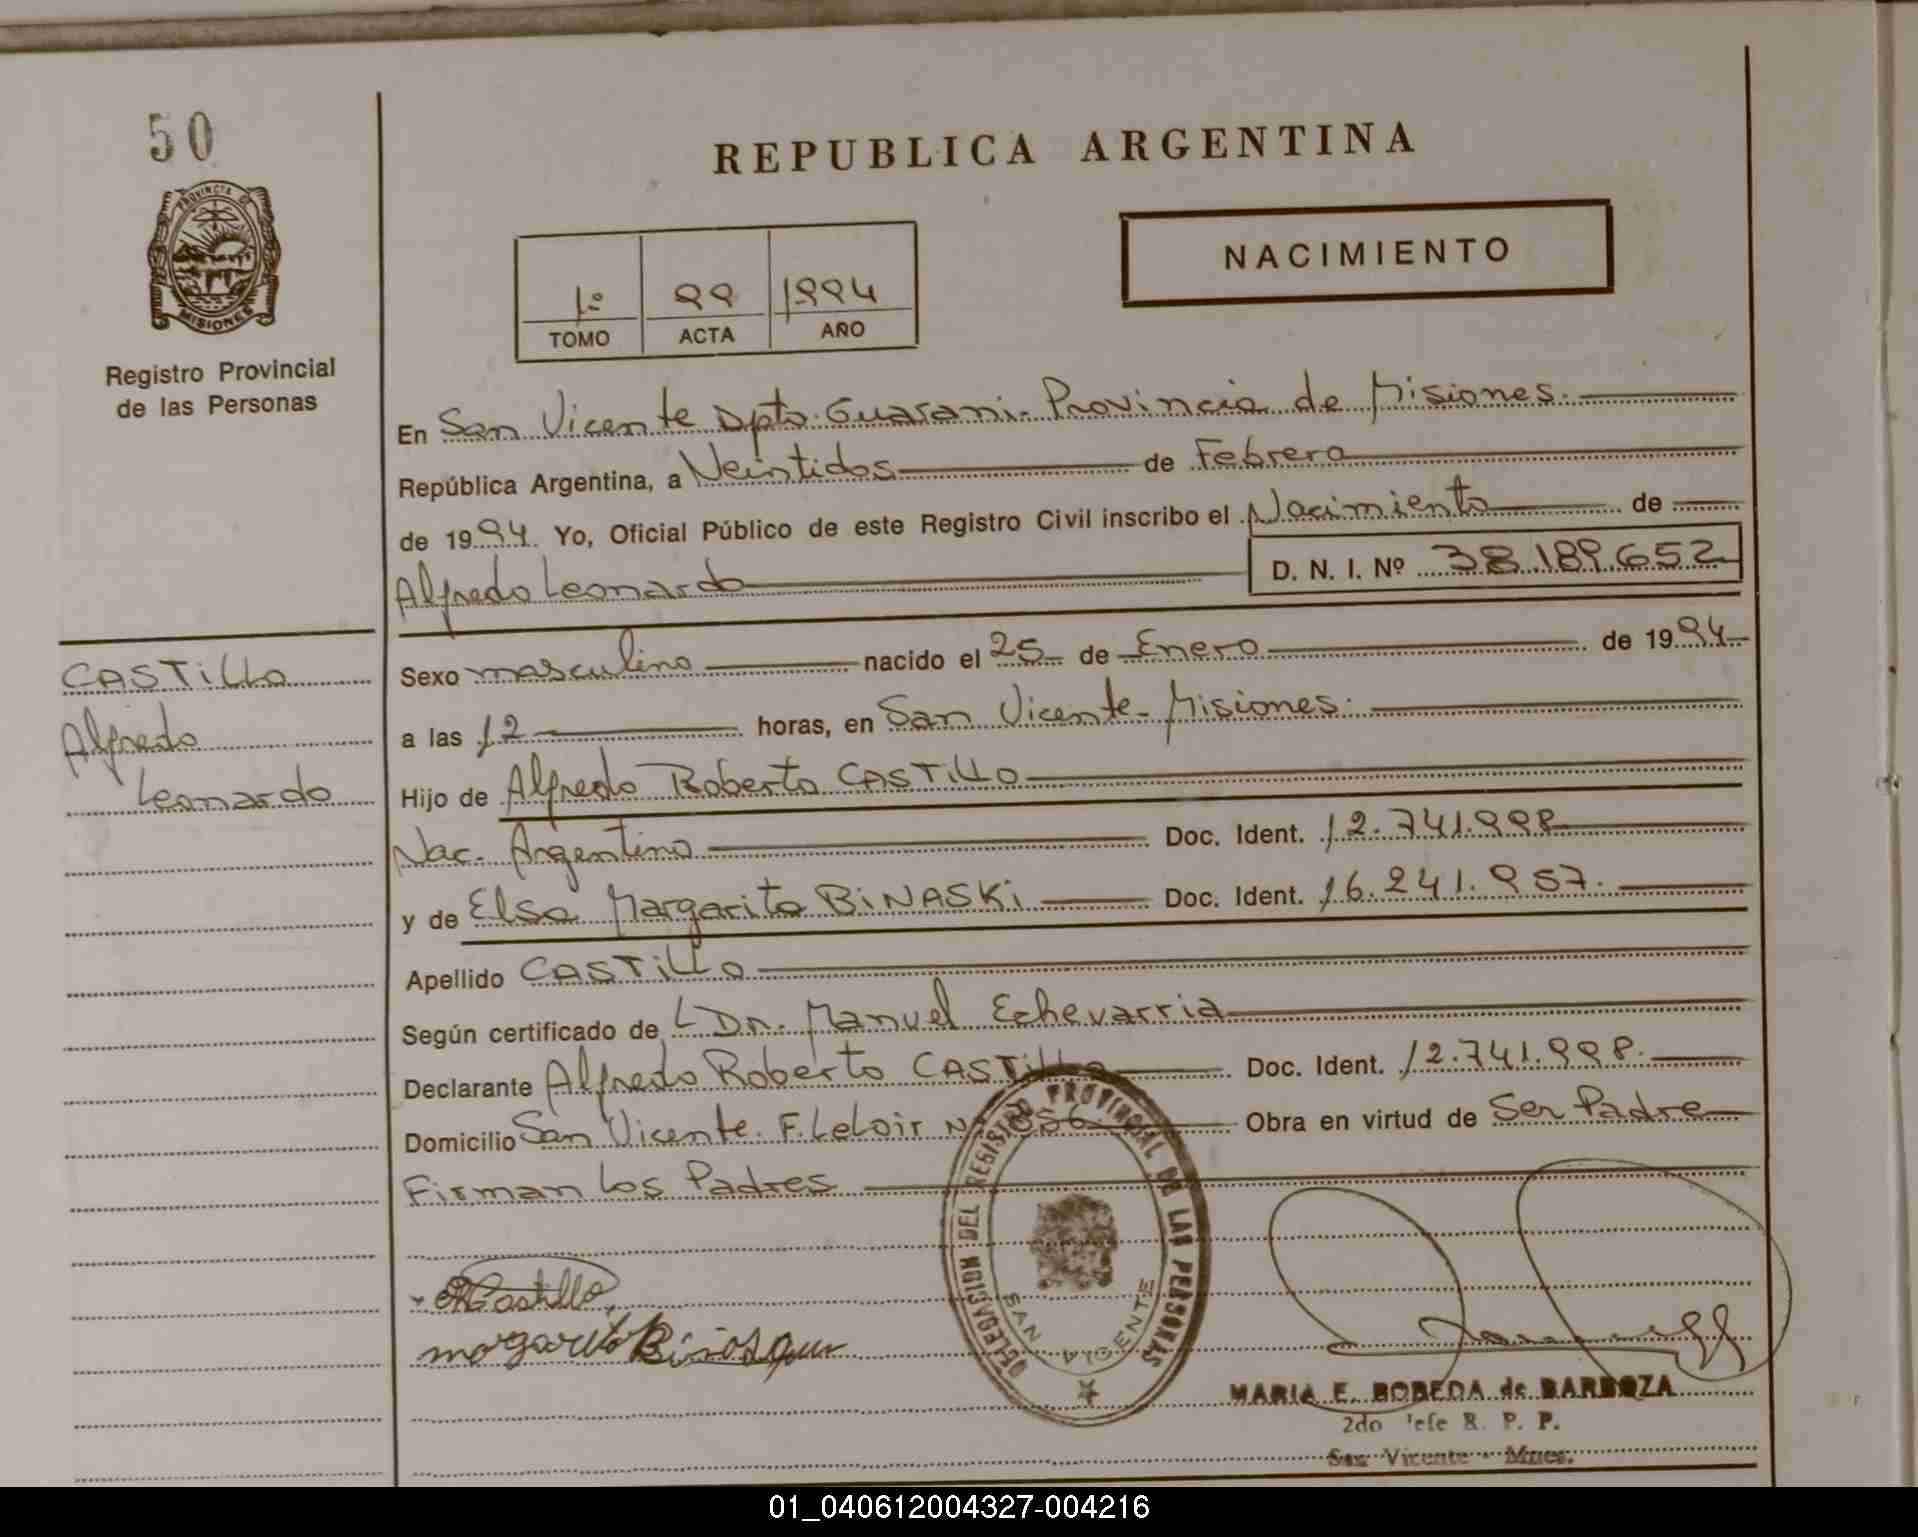 50
PROVINCIA DE
MISIONES
Registro Provincial
de las Personas
REPUBLICA ARGENTINA
NACIMIENTO
1º 99 1994
TOMO ACTA AÑO
En San Vicente Dpto. Guarani. Provincia de Misiones.
República Argentina, a Veintidos de Febrero
de 1994. Yo, Oficial Público de este Registro Civil inscribo el Nacimiento de
Alfredo Leonardo D. N. I. Nº 38.189.652
CASTILLO
Alfredo
Leonardo
Sexo masculino nacido el 25 de Enero de 1994
a las 12 horas, en San Vicente - Misiones.
Hijo de Alfredo Roberto CASTILLO
Nac. Argentino Doc. Ident. 12.741.998
y de Elsa Margarita BINASKI Doc. Ident. 16.241.957.
Apellido CASTILLO
Según certificado de L Dn. Manuel Echevarria
Declarante Alfredo Roberto CASTILLO Doc. Ident. 12.741.998.
Domicilio San Vicente. F. Leloir Nº 856 Obra en virtud de Ser Padre
Firman Los Padres
DELEGACION DEL REGISTRO PROVINCIAL DE LAS PERSONAS
SAN VICENTE
Castillo
margarita
MARIA E. BOBEDA de BARBOZA
2do Jefe R. P. P.
San Vicente - Mnes.
01_040612004327-004216